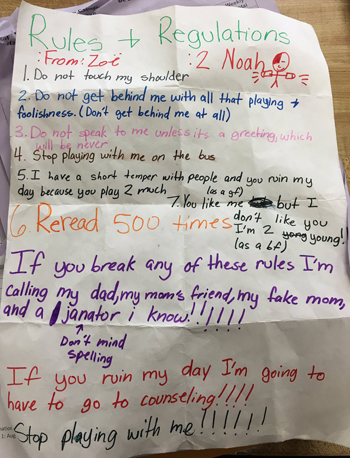 Rules + Regulations
:From: Zoë :2 Noah
1. Do not touch my shoulder
2. Do not get behind me with all that playing +
foolishness. (Don't get behind me at all)
3. Do not speak to me unless its a greeting, which
will be never
4. Stop playing with me on the bus
5. I have a short temper with people and you ruin my
day because you play 2 much
(as a gf)
7. You like me but I
don't like you
I'm 2 young!
(as a bf)
6 Reread 500 times
If you break any of these rules I'm
calling my dad, my mom's friend, my fake mom,
and a janator i know!!!!!!
Don't mind
spelling
If you ruin my day I'm going to
have to go to counseling!!!!
Stop playing with me!!!!!!